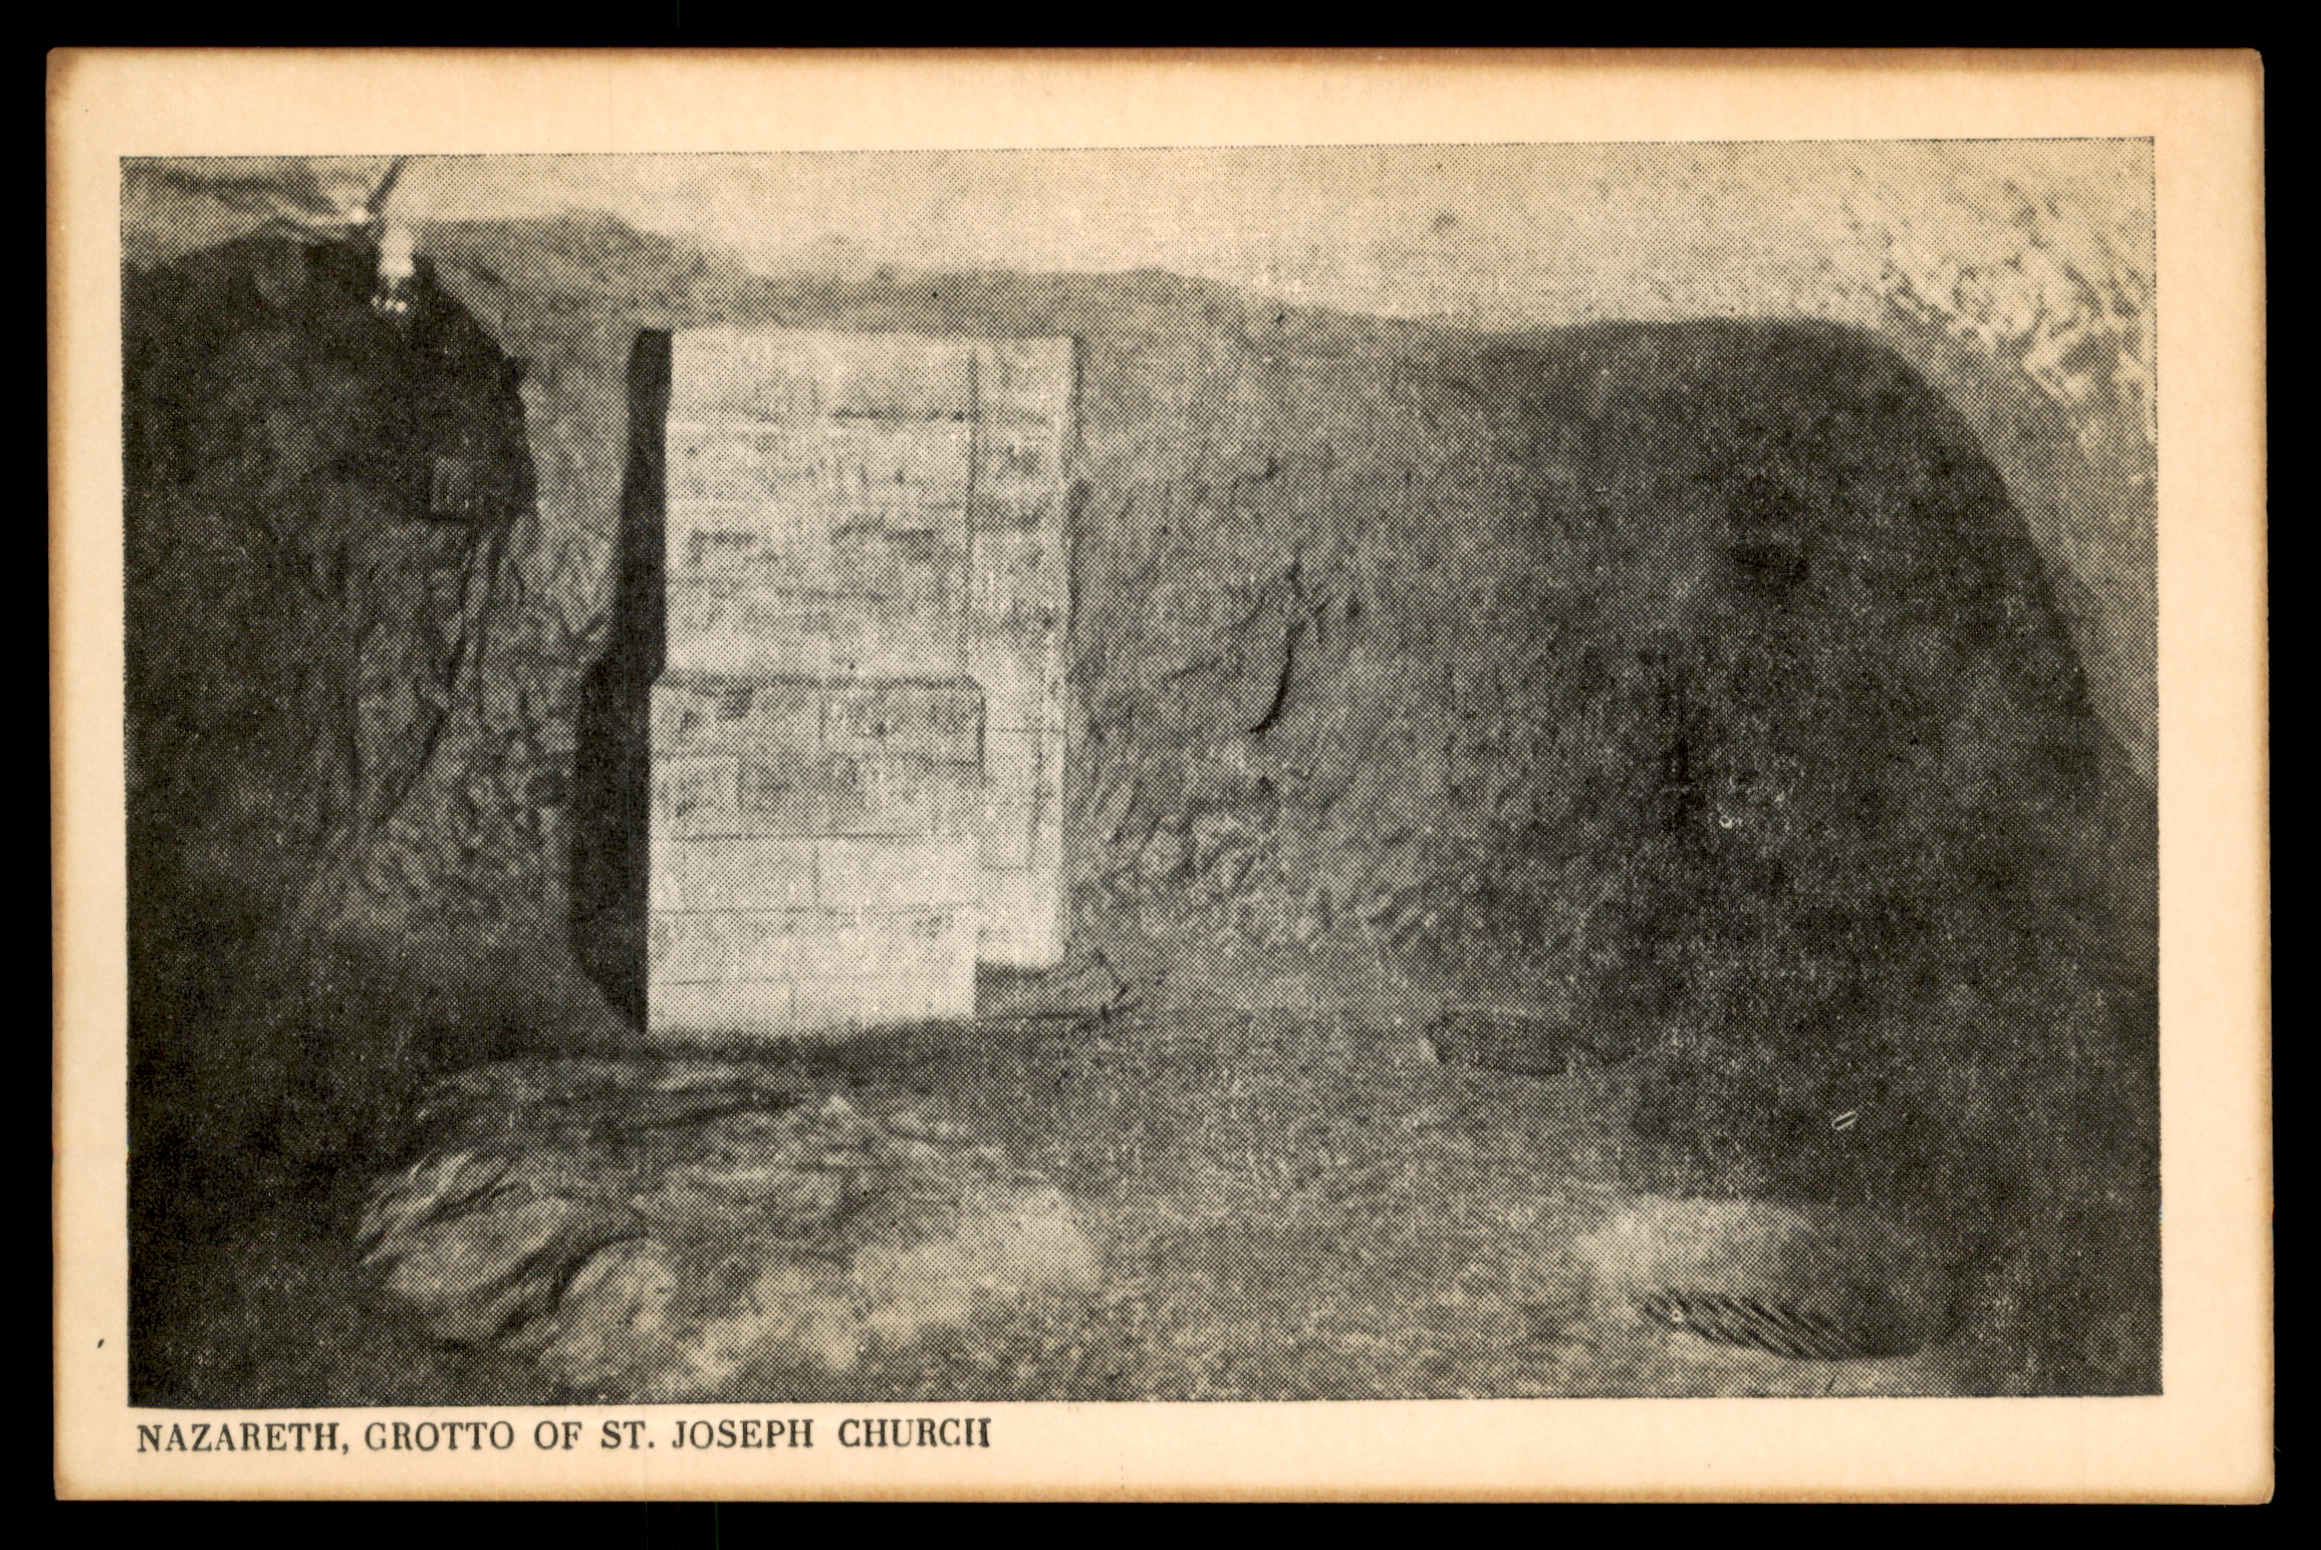 NAZARETH, GROTTO OF ST. JOSEPH CHURCH